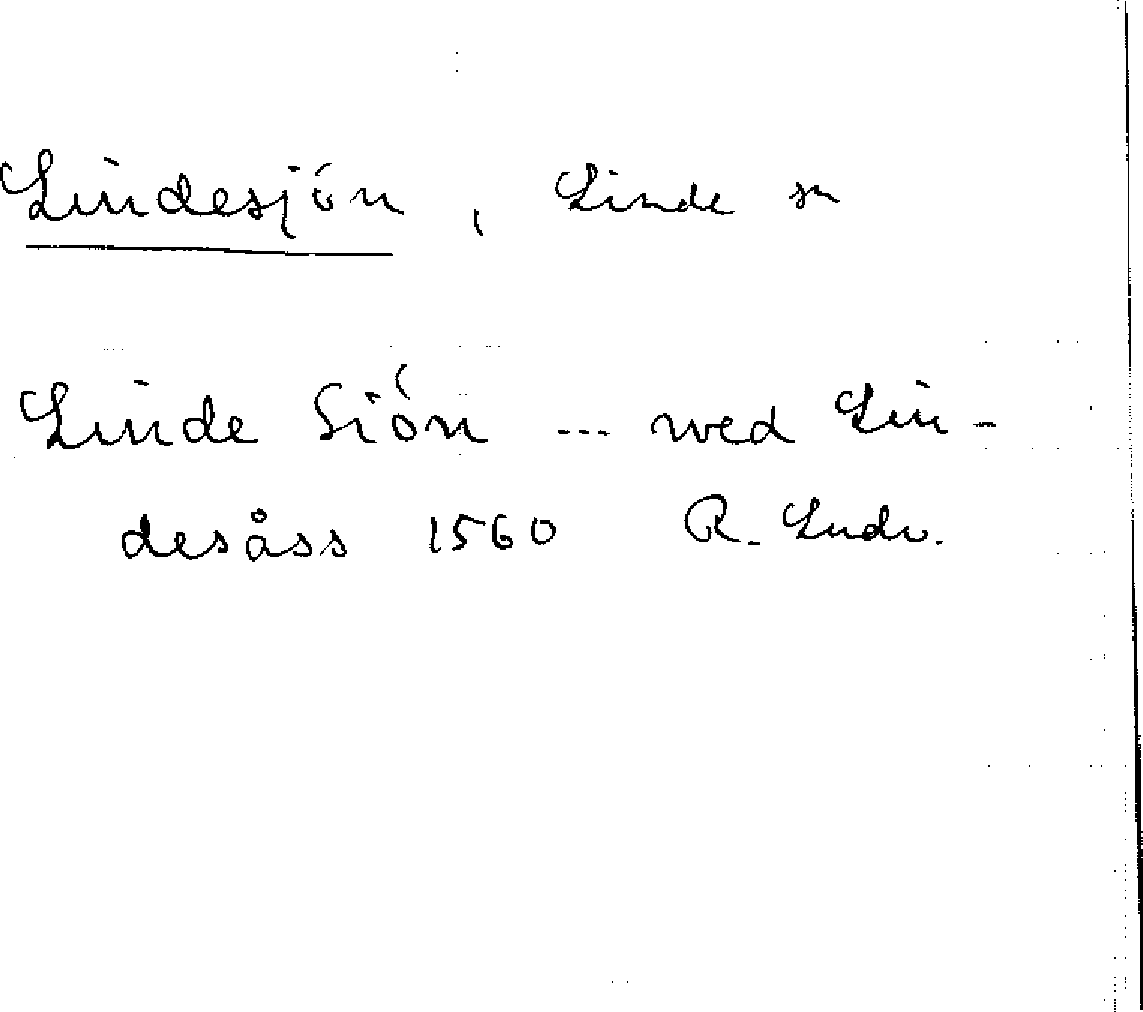 Lindesjön, Linde sn
Linde Siön --- wed Lin-
desåss 1560 R. Ludv.